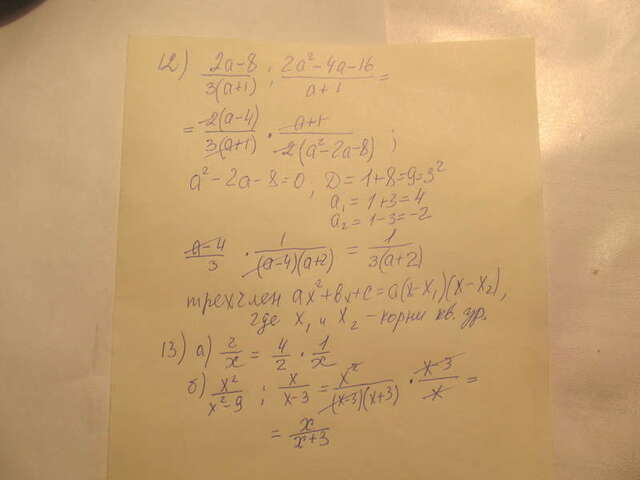 12) (2a-8)/(3(a+1)) : (2a²-4a-16)/(a+1) =
= (2(a-4))/(3(a+1)) · (a+1)/(2(a²-2a-8)) ;
a²-2a-8=0, D=1+8=9=3²
a₁ = 1+3=4
a₂ = 1-3=-2
(a-4)/3 · 1/((a-4)(a+2)) = 1/(3(a+2))
трехчлен ax²+bx+c=a(x-x₁)(x-x₂),
где x₁ и x₂ - корни кв. ур.
13) а) 2/x = 4/2 · 1/x
б) x²/(x²-9) : x/(x-3) = x²/((x-3)(x+3)) · (x-3)/x =
= x/(x+3)